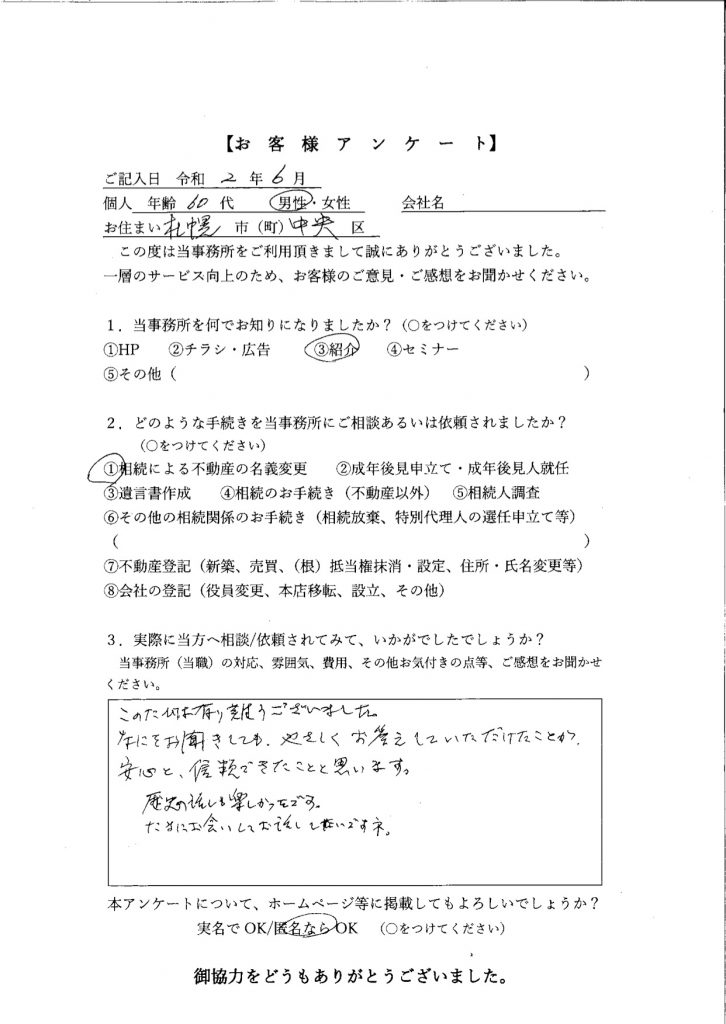 【お客様アンケート】
ご記入日 令和 2 年 6 月
個人 年齢 60 代 男性・女性 会社名
お住まい 札幌 市(町) 中央 区
この度は当事務所をご利用頂きまして誠にありがとうございました。
一層のサービス向上のため、お客様のご意見・ご感想をお聞かせください。
1．当事務所を何でお知りになりましたか？（○をつけてください）
①HP ②チラシ・広告 ③紹介 ④セミナー
⑤その他（ ）
2．どのような手続きを当事務所にご相談あるいは依頼されましたか？
（○をつけてください）
①相続による不動産の名義変更 ②成年後見申立て・成年後見人就任
③遺言書作成 ④相続のお手続き（不動産以外） ⑤相続人調査
⑥その他の相続関係のお手続き（相続放棄、特別代理人の選任申立て等）
（ ）
⑦不動産登記（新築、売買、（根）抵当権抹消・設定、住所・氏名変更等）
⑧会社の登記（役員変更、本店移転、設立、その他）
3．実際に当方へ相談/依頼されてみて、いかがでしたでしょうか？
当事務所（当職）の対応、雰囲気、費用、その他お気付きの点等、ご感想をお聞かせ
ください。
このたびは有り難うございました。
なにをお聞きしても、やさしくお答えしていただけたことが、
安心と、信頼できたことと思います。
歴史の話しも楽しかったです。
たまにお会いしてお話ししたいですネ。
本アンケートについて、ホームページ等に掲載してもよろしいでしょうか？
実名でOK/匿名ならOK （○をつけてください）
御協力をどうもありがとうございました。